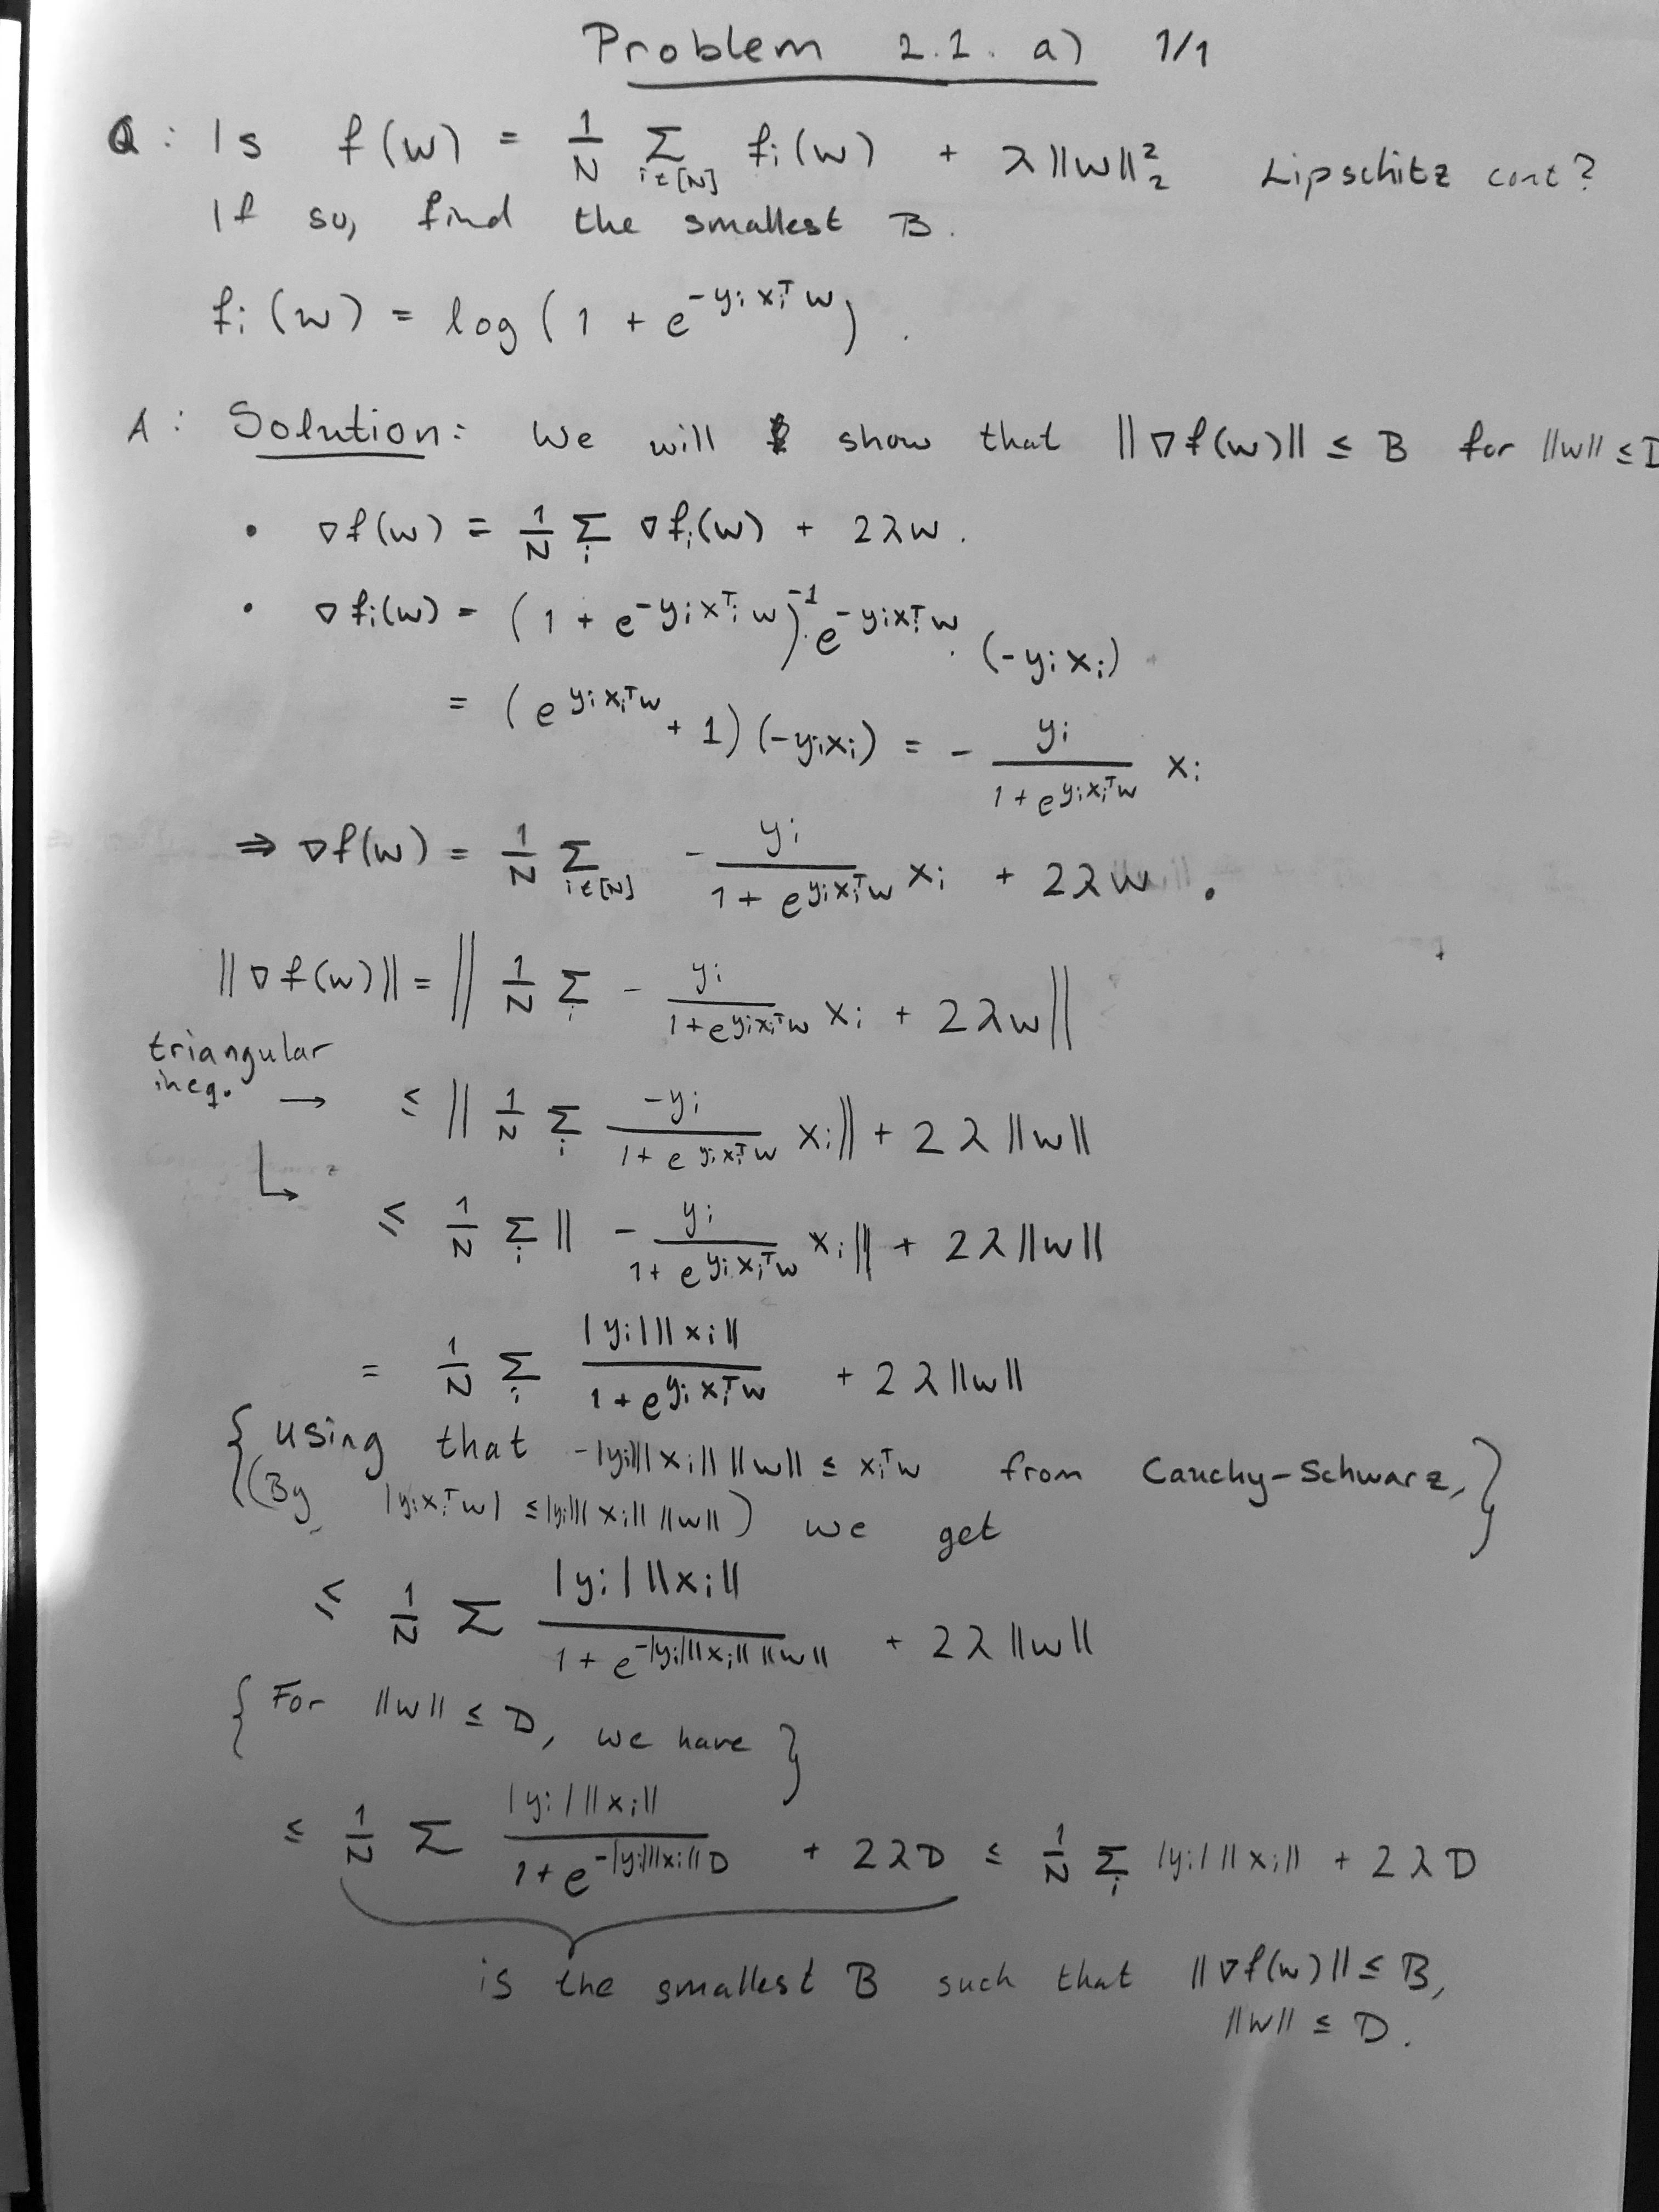 Problem 2.1. a) 1/1
Q: Is f(w) = 1/N Σ_{i∈[N]} f_i(w) + λ||w||_2^2 Lipschitz cont?
If so, find the smallest B.
f_i(w) = log(1 + e^{-y_i x_i^T w}).
A: Solution: We will show that ||∇f(w)|| ≤ B for ||w|| ≤ D
• ∇f(w) = 1/N Σ_i ∇f_i(w) + 2λw.
• ∇f_i(w) = (1 + e^{-y_i x_i^T w})^{-1} · e^{-y_i x_i^T w} · (-y_i x_i)
= (e^{y_i x_i^T w} + 1)(-y_i x_i) = - y_i/(1 + e^{y_i x_i^T w}) x_i
⇒ ∇f(w) = 1/N Σ_{i∈[N]} - y_i/(1 + e^{y_i x_i^T w}) x_i + 2λw.
||∇f(w)|| = || 1/N Σ_i - y_i/(1 + e^{y_i x_i^T w}) x_i + 2λw ||
triangular
ineq. → ≤ || 1/N Σ_i -y_i/(1 + e^{y_i x_i^T w}) x_i || + 2λ||w||
↳ ≤ 1/N Σ_i || - y_i/(1 + e^{y_i x_i^T w}) x_i || + 2λ||w||
= 1/N Σ_i |y_i| ||x_i||/(1 + e^{y_i x_i^T w}) + 2λ||w||
{ using that -|y_i| ||x_i|| ||w|| ≤ x_i^T w from Cauchy-Schwarz,
(By |y_i x_i^T w| ≤ |y_i| ||x_i|| ||w||) we get }
≤ 1/N Σ |y_i| ||x_i||/(1 + e^{-|y_i| ||x_i|| ||w||}) + 2λ||w||
{ For ||w|| ≤ D, we have }
≤ 1/N Σ |y_i| ||x_i||/(1 + e^{-|y_i| ||x_i|| D}) + 2λD ≤ 1/N Σ_i |y_i| ||x_i|| + 2λD
is the smallest B such that ||∇f(w)|| ≤ B,
||w|| ≤ D.